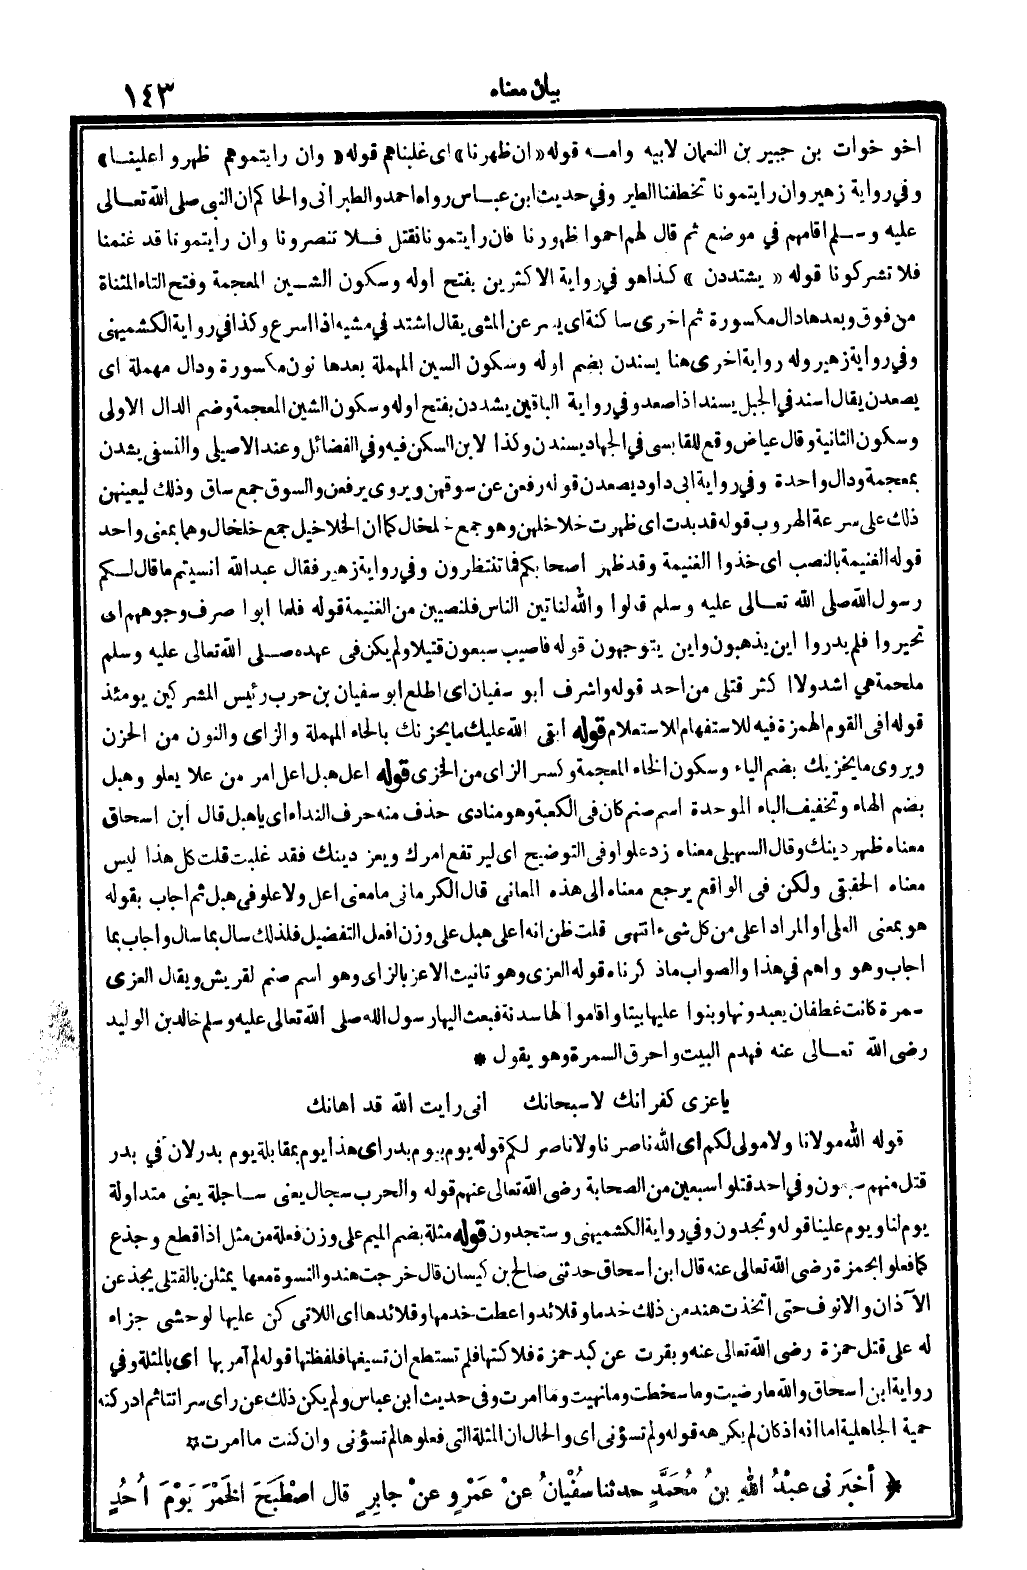 بيان معناه ١٤٣
اخو خوات بن جبير بن النعمان لابيه وامه قوله «ان ظهرنا» اى غلبناهم قوله «وان رايتموهم ظهروا علينا»
وفي رواية زهير وان رايتمونا تخطفنا الطير وفي حديث ابن عباس رواه احمد والطبرانى والحاكم ان النبى صلى الله تعالى
عليه وسلم اقامهم في موضع ثم قال لهم احموا ظهورنا فان رايتمونا نقتل فلا تنصرونا وان رايتمونا قد غنمنا
فلا تشركونا قوله «يشتددن» كذا هو في رواية الاكثرين بفتح اوله وسكون الشين المعجمة وفتح التاء المثناة
من فوق وبعدها دال مكسورة ثم اخرى ساكنة اى يسر عن المشى يقال اشتد في مشيه اذا اسرع وكذا في رواية الكشميهنى
وفي رواية زهير وله رواية اخرى هنا يسندن بضم اوله وسكون السين المهملة بعدها نون مكسورة ودال مهملة اى
يصعدن يقال اسند في الجبل يسند اذا صعد وفي رواية الباقين يشددن بفتح اوله وسكون الشين المعجمة وضم الدال الاولى
وسكون الثانية وقال عياض وقع للقابسى في الجهاد يسندن وكذا لابن السكن فيه وفي الفضائل وعند الاصيلى والنسفى يشدن
بمعجمة ودال واحدة وفي رواية ابى داود يصعدن قوله رفعن عن سوقهن ويروى يرفعن والسوق جمع ساق وذلك ليعينهن
ذلك على سرعة الهروب قوله قد بدت اى ظهرت خلاخلهن وهو جمع خلخال كما ان الخلاخيل جمع خلخال وهما بمعنى واحد
قوله الغنيمة بالنصب اى خذوا الغنيمة وقد ظهر اصحابكم فما تنتظرون وفي رواية زهير فقال عبد الله انسيتم ما قال لكم
رسول الله صلى الله تعالى عليه وسلم قالوا والله لناتين الناس فلنصيبن من الغنيمة قوله فلما ابوا صرف وجوههم اى
تحيروا فلم يدروا اين يذهبون واين يتوجهون قوله فاصيب سبعون قتيلا ولم يكن فى عهده صلى الله تعالى عليه وسلم
ملحمة هي اشد ولا اكثر قتلى من احد قوله واشرف ابو سفيان اى اطلع ابو سفيان بن حرب رئيس المشركين يومئذ
قوله افى القوم الهمزة فيه للاستفهام للاستعلام قوله ابقى الله عليك ما يحزنك بالحاء المهملة والزاى والنون من الحزن
ويروى ما يخزيك بضم الياء وسكون الخاء المعجمة وكسر الزاى من الخزى قوله اعل هبل اعل امر من علا يعلو وهبل
بضم الهاء وتخفيف الباء الموحدة اسم صنم كان فى الكعبة وهو منادى حذف منه حرف النداء اى يا هبل قال ابن اسحاق
معناه ظهر دينك وقال السهيلى معناه زد علوا وفى التوضيح اى ليرتفع امرك ويعز دينك فقد غلبت قلت كل هذا ليس
معناه الحقيقى ولكن فى الواقع يرجع معناه الى هذه المعانى قال الكرمانى ما معنى اعل ولا علو فى هبل ثم اجاب بقوله
هو بمعنى العلى او المراد اعلى من كل شىء انتهى قلت ظن انه اعلى هبل على وزن افعل التفضيل فلذلك سال بما سال واجاب بما
اجاب وهو واهم في هذا والصواب ما ذكرناه قوله العزى وهو تانيث الاعز بالزاى وهو اسم صنم لقريش ويقال العزى
سمرة كانت غطفان يعبدونها وبنوا عليها بيتا واقاموا لها سدنة فبعث اليها رسول الله صلى الله تعالى عليه وسلم خالد بن الوليد
رضى الله تعالى عنه فهدم البيت واحرق السمرة وهو يقول *
يا عزى كفرانك لا سبحانك انى رايت الله قد اهانك
قوله الله مولانا ولا مولى لكم اى الله ناصرنا ولا ناصر لكم قوله يوم بيوم بدر اى هذا يوم بمقابلة يوم بدر لان في بدر
قتل منهم سبعون وفي احد قتلوا سبعين من الصحابة رضى الله تعالى عنهم قوله والحرب سجال يعنى ساجلة يعنى متداولة
يوم لنا ويوم علينا قوله وتجدون وفي رواية الكشميهنى وستجدون قوله مثلة بضم الميم على وزن فعلة من مثل اذا قطع وجذع
كما فعلوا بحمزة رضى الله تعالى عنه قال ابن اسحاق حدثنى صالح بن كيسان قال خرجت هند والنسوة معها يمثلن بالقتلى يجذعن
الآذان والانوف حتى اتخذت هند من ذلك خدما وقلائد واعطت خدمها وقلائدها اى اللاتى كن عليها لوحشى جزاء
له على قتل حمزة رضى الله تعالى عنه وبقرت عن كبد حمزة فلاكتها فلم تستطع ان تسيغها فلفظتها قوله لم آمر بها اى بالمثلة وفي
رواية ابن اسحاق والله ما رضيت وما سخطت وما نهيت وما امرت وفى حديث ابن عباس ولم يكن ذلك عن راى سراتنا ثم ادركته
حمية الجاهلية اما انه اذ كان لم يكرهه قوله ولم تسؤنى اى والحال ان المثلة التى فعلوها لم تسؤنى وان كنت ما امرت *
﴿ أخبَرَنى عبْدُ اللهِ بنُ مُحَمَّدٍ حدثنا سُفْيانُ عنْ عَمْرٍو عنْ جابِرٍ قال اصْطَبَحَ الخَمْرَ يَوْمَ أُحُدٍ